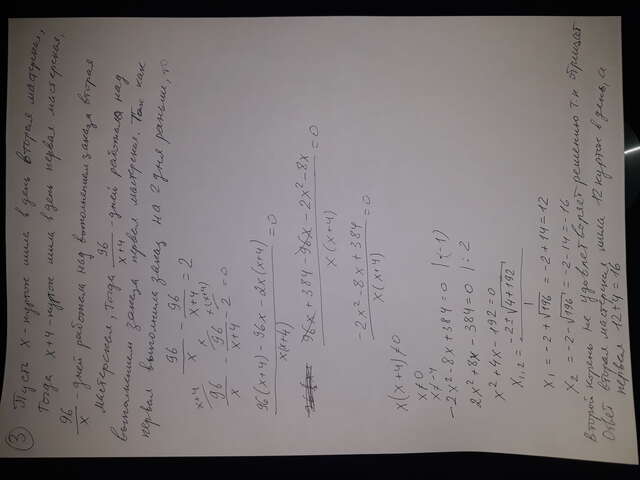 ③ Пусть x - курток шила в день вторая мастерская,
тогда x+4 - курток шила в день первая мастерская,
96/x - дней работала над выполнением заказа вторая
мастерская, тогда 96/x+4 - дней работала над
выполнением заказа первая мастерская. Так как
первая выполнила заказ на 2 дня раньше, то
96/x - 96/x+4 = 2
x+4 x x(x+4)
96/x - 96/x+4 - 2 = 0
96(x+4) - 96x - 2x(x+4)/x(x+4) = 0
96x + 384 - 96x - 2x² - 8x/x(x+4) = 0
-2x² - 8x + 384/x(x+4) = 0
x(x+4) ≠ 0
x ≠ 0
x ≠ -4
-2x² - 8x + 384 = 0 |·(-1)
2x² + 8x - 384 = 0 | : 2
x² + 4x - 192 = 0
x₁,₂ = -2 ± √4+192/1
x₁ = -2 + √196 = -2 + 14 = 12
x₂ = -2 - √196 = -2 - 14 = -16
второй корень не удовлетворяет решению т.к отрицат
Ответ вторая мастерская шила 12 курток в день, а
первая 12+4=16